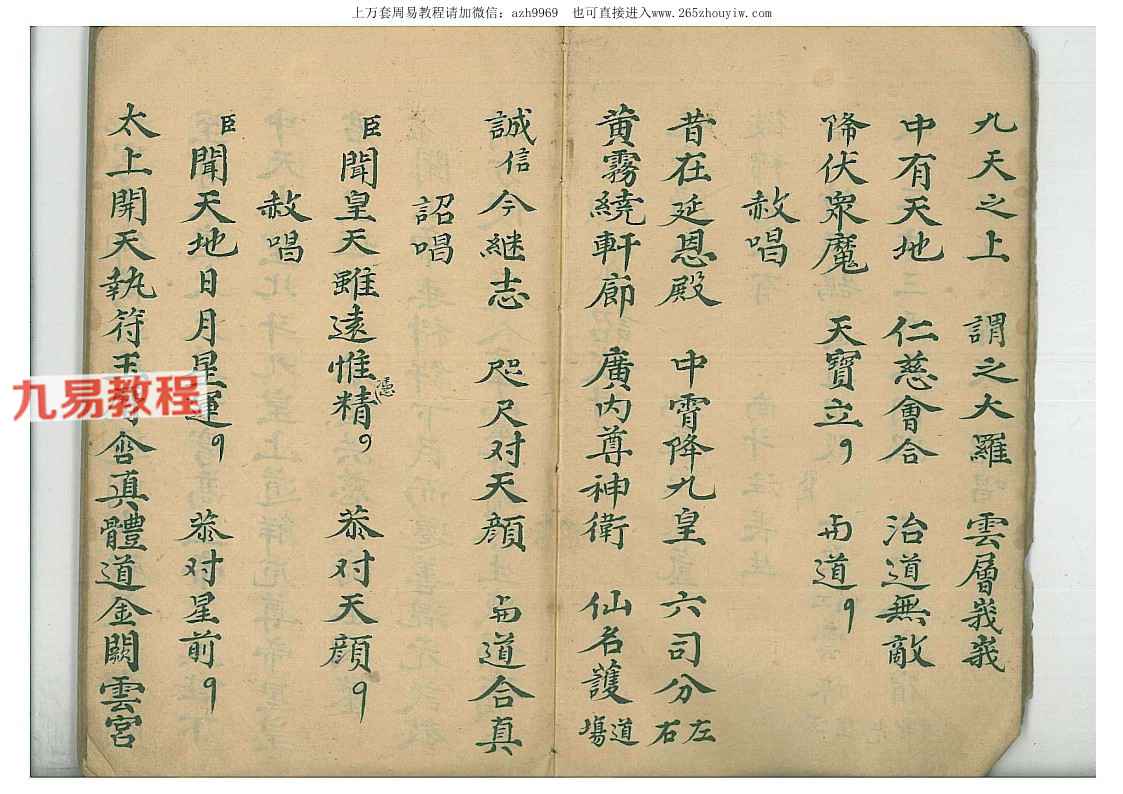 上万套周易教程请加微信：azh9969 也可直接进入www.265zhouyiw.com
九天之上 謂之大羅 雲層峩峩
中有天地 仁慈會合 治道無敵
降伏眾魔 天寶立 道
赦唱
昔在延恩殿 中霄降九皇 六司分左右
黄霧繞軒廊 廣内尊神衛 仙名護道塲
誠信今継志 咫尺对天顔 道合真
詔唱
臣聞皇天雖遠惟精 㤨对天顔
憑
臣聞天地日月星運 㤨对星前
赦唱
太上開天執符 含真體道金闕雲宮
九易教程